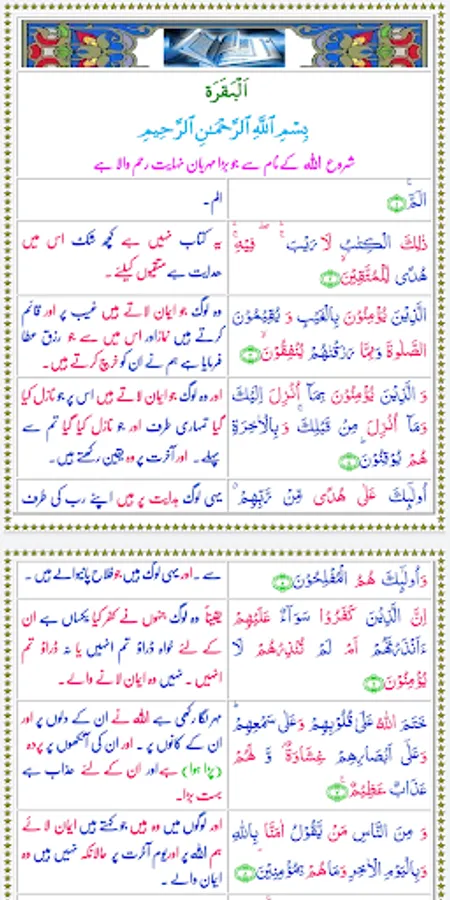 اَلْبَقَرَة
بِسْمِ اللهِ الرَّحْمٰنِ الرَّحِيْمِ
شروع اللہ کے نام سے جو بڑا مہربان نہایت رحم والا ہے
الٓمّٓ ۚ ﴿۱﴾
الم۔
ذٰلِكَ الْكِتٰبُ لَا رَيْبَ ۛ ۖ فِيْهِ ۛ ۚ
هُدًى لِّلْمُتَّقِيْنَ ۙ ﴿۲﴾
یہ کتاب نہیں ہے کچھ شک اس میں
ھدایت ہے متقیوں کیلئے۔
الَّذِيْنَ يُؤْمِنُوْنَ بِالْغَيْبِ وَ يُقِيْمُوْنَ
الصَّلٰوةَ وَمِمَّا رَزَقْنٰهُمْ يُنْفِقُوْنَ ۙ ﴿۳﴾
وہ لوگ جو ایمان لاتے ہیں غیب پر اور قائم
کرتے ہیں نمازاور اس میں سے جو رزق عطا
فرمایا ہے ہم نے ان کو خرچ کرتے ہیں۔
وَ الَّذِيْنَ يُؤْمِنُوْنَ بِمَاۤ اُنْزِلَ اِلَيْكَ
وَمَاۤ اُنْزِلَ مِنْ قَبْلِكَ ۚ وَبِالْاٰخِرَةِ
هُمْ يُوْقِنُوْنَ ؕ ﴿۴﴾
اور وہ لوگ جو ایمان لاتے ہیں اس پر جو نازل کیا
گیا تمہاری طرف اور جو نازل کیا گیا تم سے
پہلے۔ اور آخرت پر وہ یقین رکھتے ہیں۔
اُولٰٓئِكَ عَلٰى هُدًى مِّنْ رَّبِّهِمْ ۙ
یہی لوگ ہدایت پر ہیں اپنے رب کی طرف
وَاُولٰٓئِكَ هُمُ الْمُفْلِحُوْنَ ﴿۵﴾
سے ۔اور یہی لوگ ہیں جوفلاح پانیوالے ہیں ۔
اِنَّ الَّذِيْنَ كَفَرُوْا سَوَآءٌ عَلَيْهِمْ
ءَاَنْذَرْتَهُمْ اَمْ لَمْ تُنْذِرْهُمْ لَا
يُؤْمِنُوْنَ ﴿۶﴾
یقیناً وہ لوگ جنہوں نے کفر کیا یکساں ہے ان
کے لئے خواہ ڈراؤ تم انہیں یا نہ ڈراؤ تم
انہیں ۔ نہیں وہ ایمان لانے والے۔
خَتَمَ اللهُ عَلٰى قُلُوْبِهِمْ وَعَلٰى سَمْعِهِمْ ؕ
وَعَلٰٓى اَبْصَارِهِمْ غِشَاوَةٌ ؗ وَّ لَهُمْ
عَذَابٌ عَظِيْمٌ ۠ ﴿۷﴾
مہر لگا رکھی ہے اللہ نے ان کے دلوں پر اور
ان کے کانوں پر ۔ اور ان کی آنکھوں پر پردہ
(پڑا ہوا) ہےاور ان کے لئے عذاب ہے
بہت بڑا۔
وَ مِنَ النَّاسِ مَنْ يَّقُوْلُ اٰمَنَّا بِاللهِ
وَبِالْيَوْمِ الْاٰخِرِ وَمَا هُمْ بِمُؤْمِنِيْنَ ۘ ﴿۸﴾
اور لوگوں میں وہ ہیں جو کہتے ہیں ایمان لائے
ہم اللہ پر اوریوم آخرت پر حالانکہ نہیں ہیں وہ
ایمان والے ۔